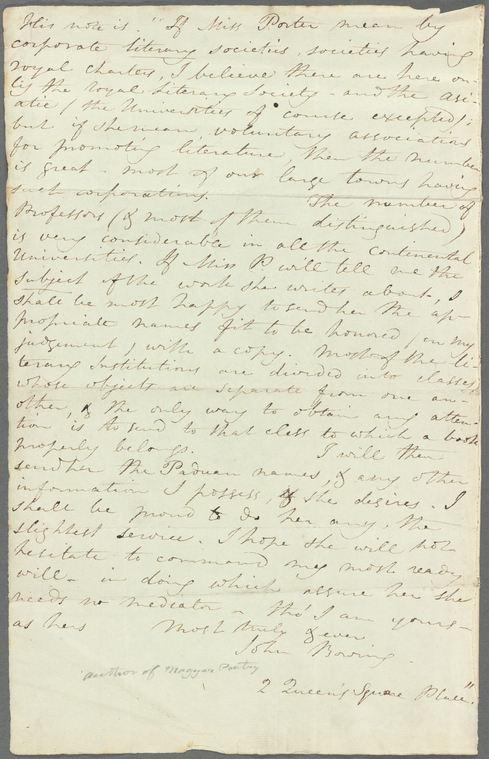 His note is. "If Miss Porter mean by
corporate literary societies, societies having
royal charters, I believe there are here on-
ly the royal Literary Society - and the asi-
atic (the Universities of course excepted);
but if she mean, voluntary associations
for promoting literature, then the number
is great - most of our large towns having
such corporations. The number of
Professors (& most of them distinguished)
is very considerable in all the continental
Universities. If Miss P. will tell me the
subject of the work she writes about, I
shall be most happy to send her the ap-
propriate names fit to be honored (in my
judgement) with a copy. Most of the li-
terary Institutions are divided into classes
whose objects are separate from one an-
other, & the only way to obtain any atten-
tion is to send to that class to which a book
properly belongs. I will then
send her the Paduan names, & any other
information I possess & she desires. I
shall be proud to do her any the
slightest service. I hope she will not
hesitate to command my most ready
will - in doing which assure her she
needs no mediator - tho' I am yours -
as hers Most truly & ever
John Bowring.
author of Magyar Poetry
2 Queen's Square Place".